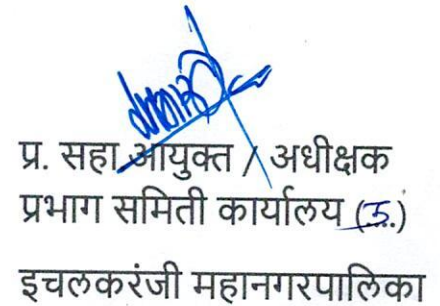 प्र. सहा. आयुक्त / अधीक्षक
प्रभाग समिती कार्यालय (ड.)
इचलकरंजी महानगरपालिका